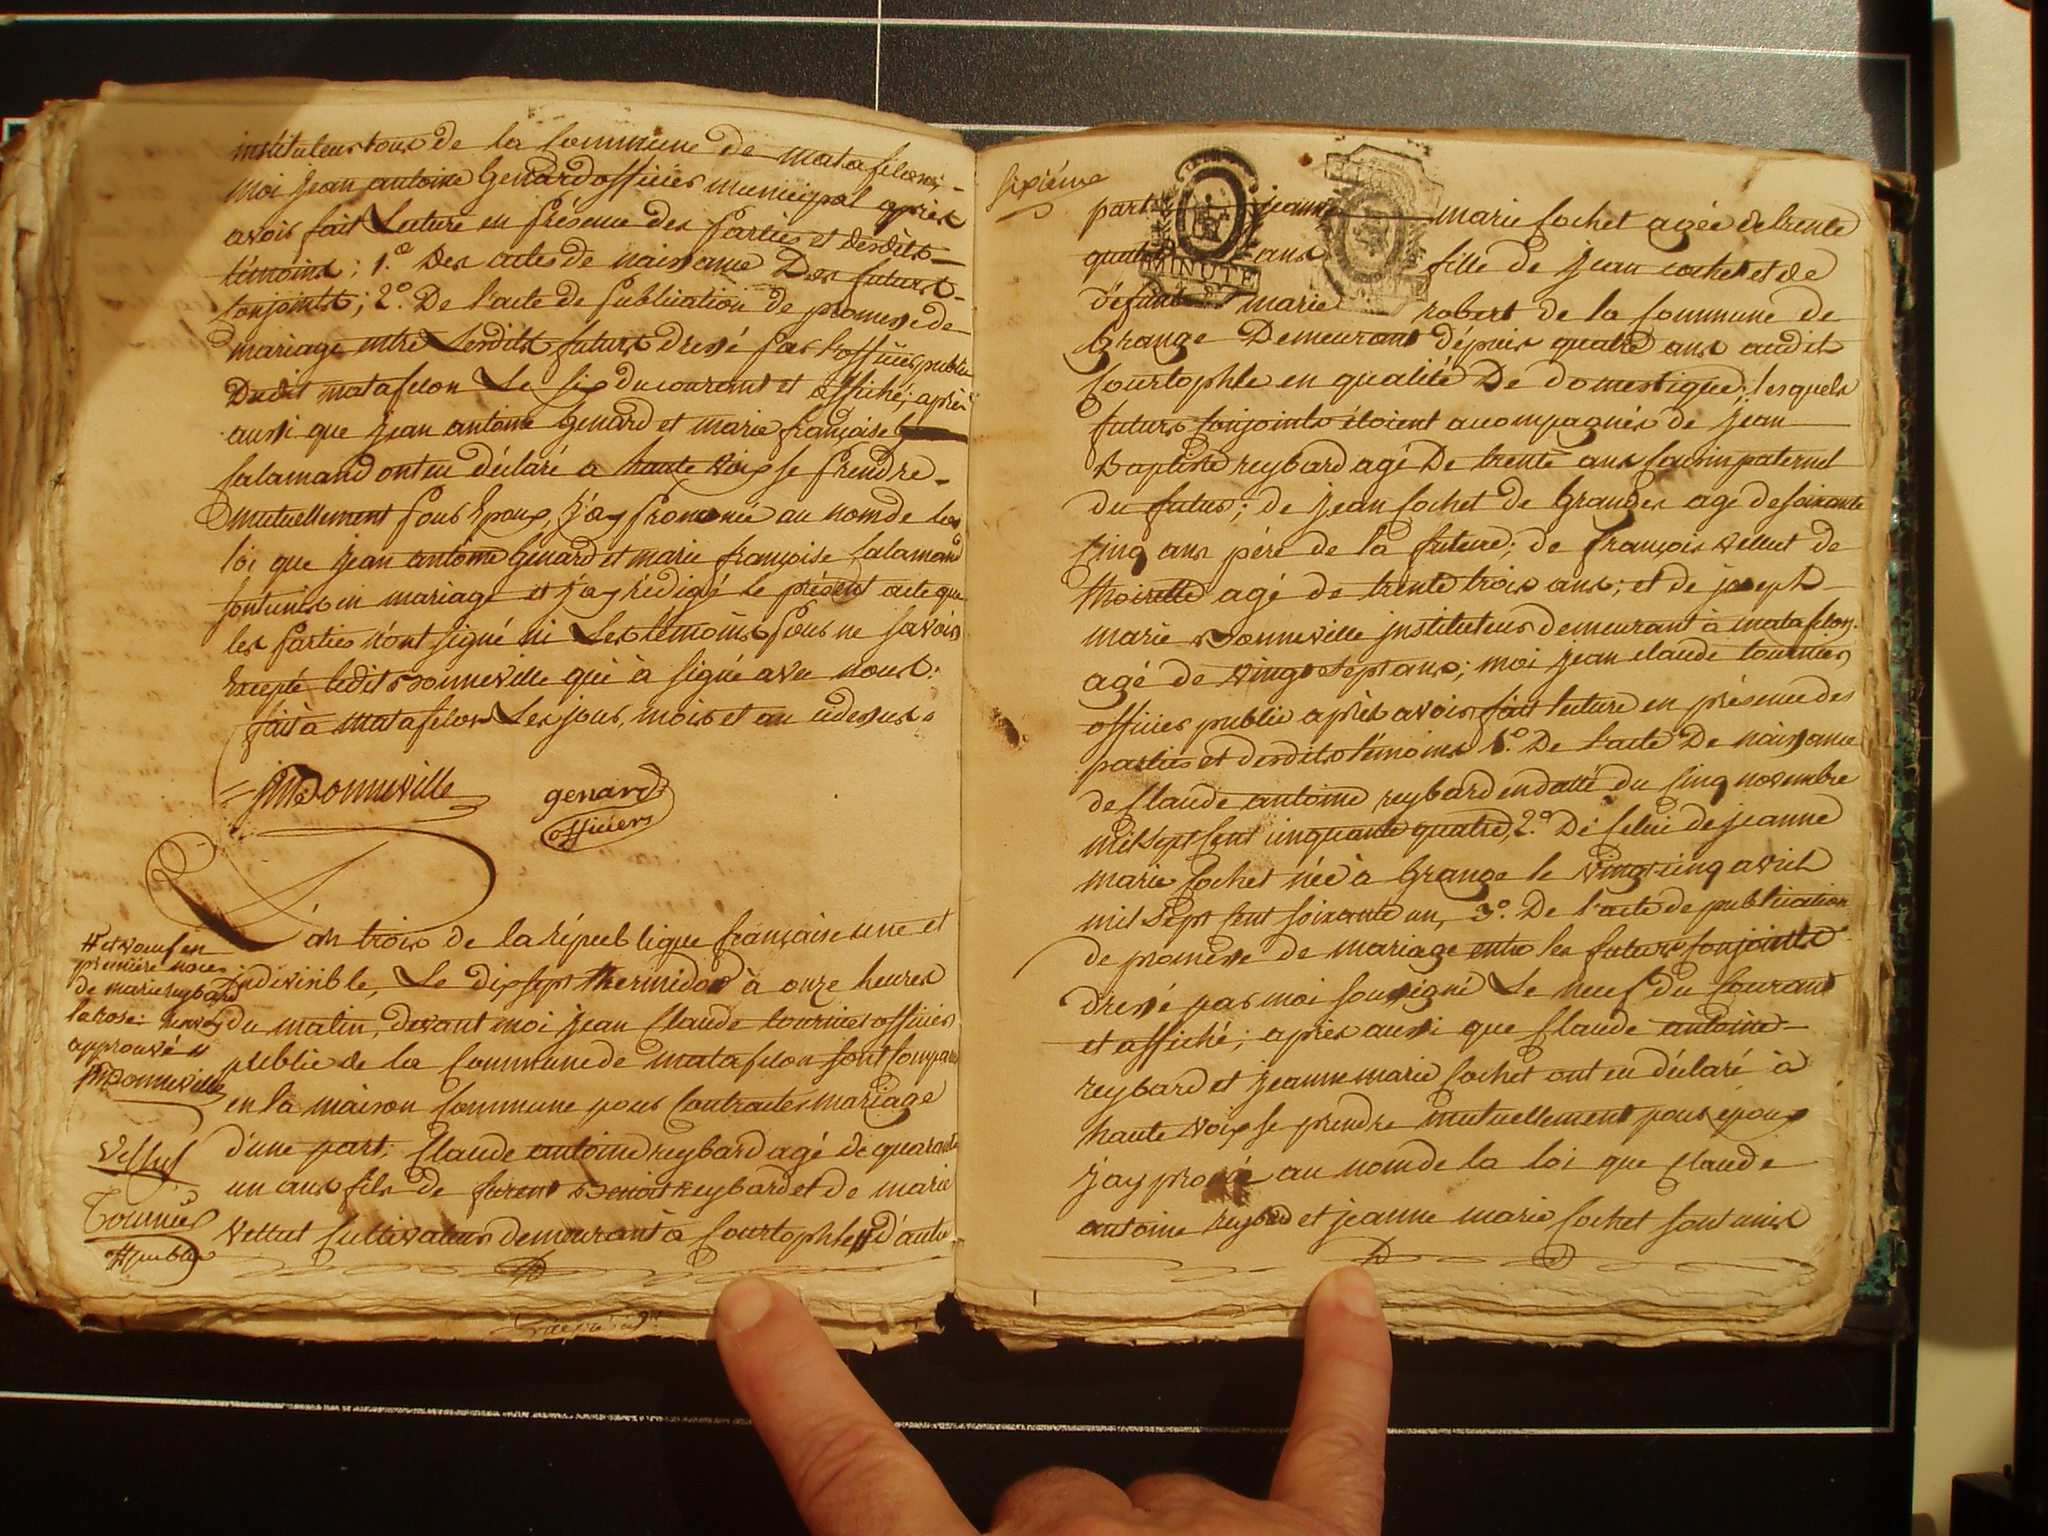 instituteur tous de la Commune de matafelon;
moi jean antoine Genard officier municipal après
avoir fait Lecture en présence des Parties et desdits
témoins; 1.° Des actes de naissance Des futurs
Conjoints; 2.° De l'acte de Publication de promesse de
mariage entre Lesdits futurs dressé par l'officier public
Dudit matafelon Le six du courant et affiché; après
aussi que jean antoine Genard et marie françoise
Salamand ont eu déclaré a haute Voix se Prendre
mutuellement Pour Epoux, j'ay Prononcé au nom de la
loi que jean antoine Genard et marie françoise Salamand
sont unis en mariage et j'ay rédigé le présent acte que
les Parties n'ont signé ni Les témoins Pour ne savoir
Excepté ledit Bonneville qui à signé avec nous.
fait à matafelon Les jour, mois et an cidessus.
jmBonneville genard
officier
L'an trois de la république française une et
indivisible, Le dix sept thermidor à onze heures
du matin, devant moi jean Claude tournier officier
public de la Commune de matafelon sont Comparu
en la maison Commune pour Contracter mariage
d'une part; Claude antoine reybard agé de quarante
un ans fils de furent Benoit Reybard et de marie
Vettut Cultivateur demeurant à Courtophle # d'autre
# et voeuf en
première noces
de marie reybard
larose: renvoy
approuvé #
jmBonneville
Vettut
Tournier
off public
sixième
part jeanne marie Cochet agée de trente
quatre ans fille de jean cochet et de
défunte marie robert de la Commune de
Grange Demeurant dépuis quatre ans audit
Courtophle en qualité De domestique; lesquels
futurs Conjoints étoient acompagnés de jean
Baptiste reybard agé De trente ans Cousin paternel
du futur; de jean Cochet de Granges agé de soixante
Cinq ans pére de la future; de françois vettut de
thoirette agé de trente trois ans; et de joseph
marie Bonneville instituteur demeurant à matafelon
agé de vingt sept ans; moi jean claude tournier
officier public après avoir fait lecture en présence des
parties et desdits témoins 1.° De l'acte De naissance
de Claude antoine reybard en datte du Cinq novembre
mil sept Cent cinquante quatre, 2.° De Celui de jeanne
marie Cochet née à Grange le vingt cinq avril
mil sept Cent soixante un, 3.° De l'acte de publication
de promesse de mariage entre les futurs Conjoints
dressé par moi soussigné Le neuf du Courant
et affiché; après aussi que Claude antoine
reybard et jeanne marie Cochet ont eu déclaré à
haute Voix se prendre mutuellement pour époux
j'ay au nom de la loi que Claude
antoine reybard et jeanne marie Cochet sont unis
MINUTE